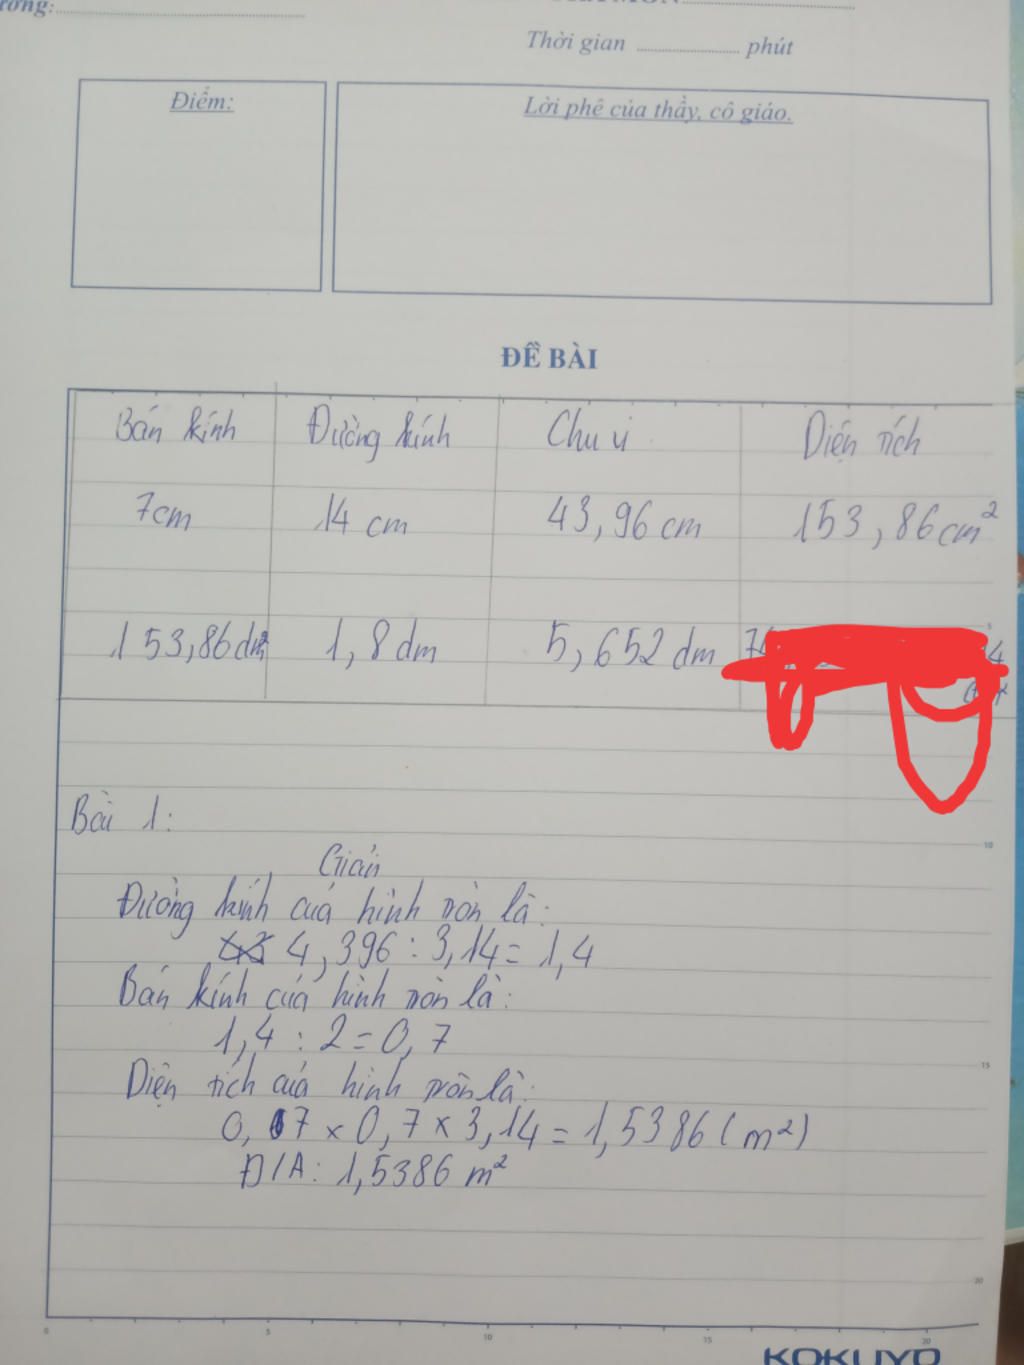 Thời gian ................ phút
Điểm:
Lời phê của thầy, cô giáo.
ĐỀ BÀI
Bán kính Đường kính Chu vi Diện tích
7cm 14 cm 43,96 cm 153,86 cm²
153,86 dm² 1,8 dm 5,652 dm
Bài 1:
Giải
Đường kính của hình tròn là:
4,396 : 3,14 = 1,4
Bán kính của hình tròn là:
1,4 : 2 = 0,7
Diện tích của hình tròn là:
0,7 x 0,7 x 3,14 = 1,5386 (m²)
Đ/A: 1,5386 m²
5
10
15
20
0 5 10 15 20
KOKUYO